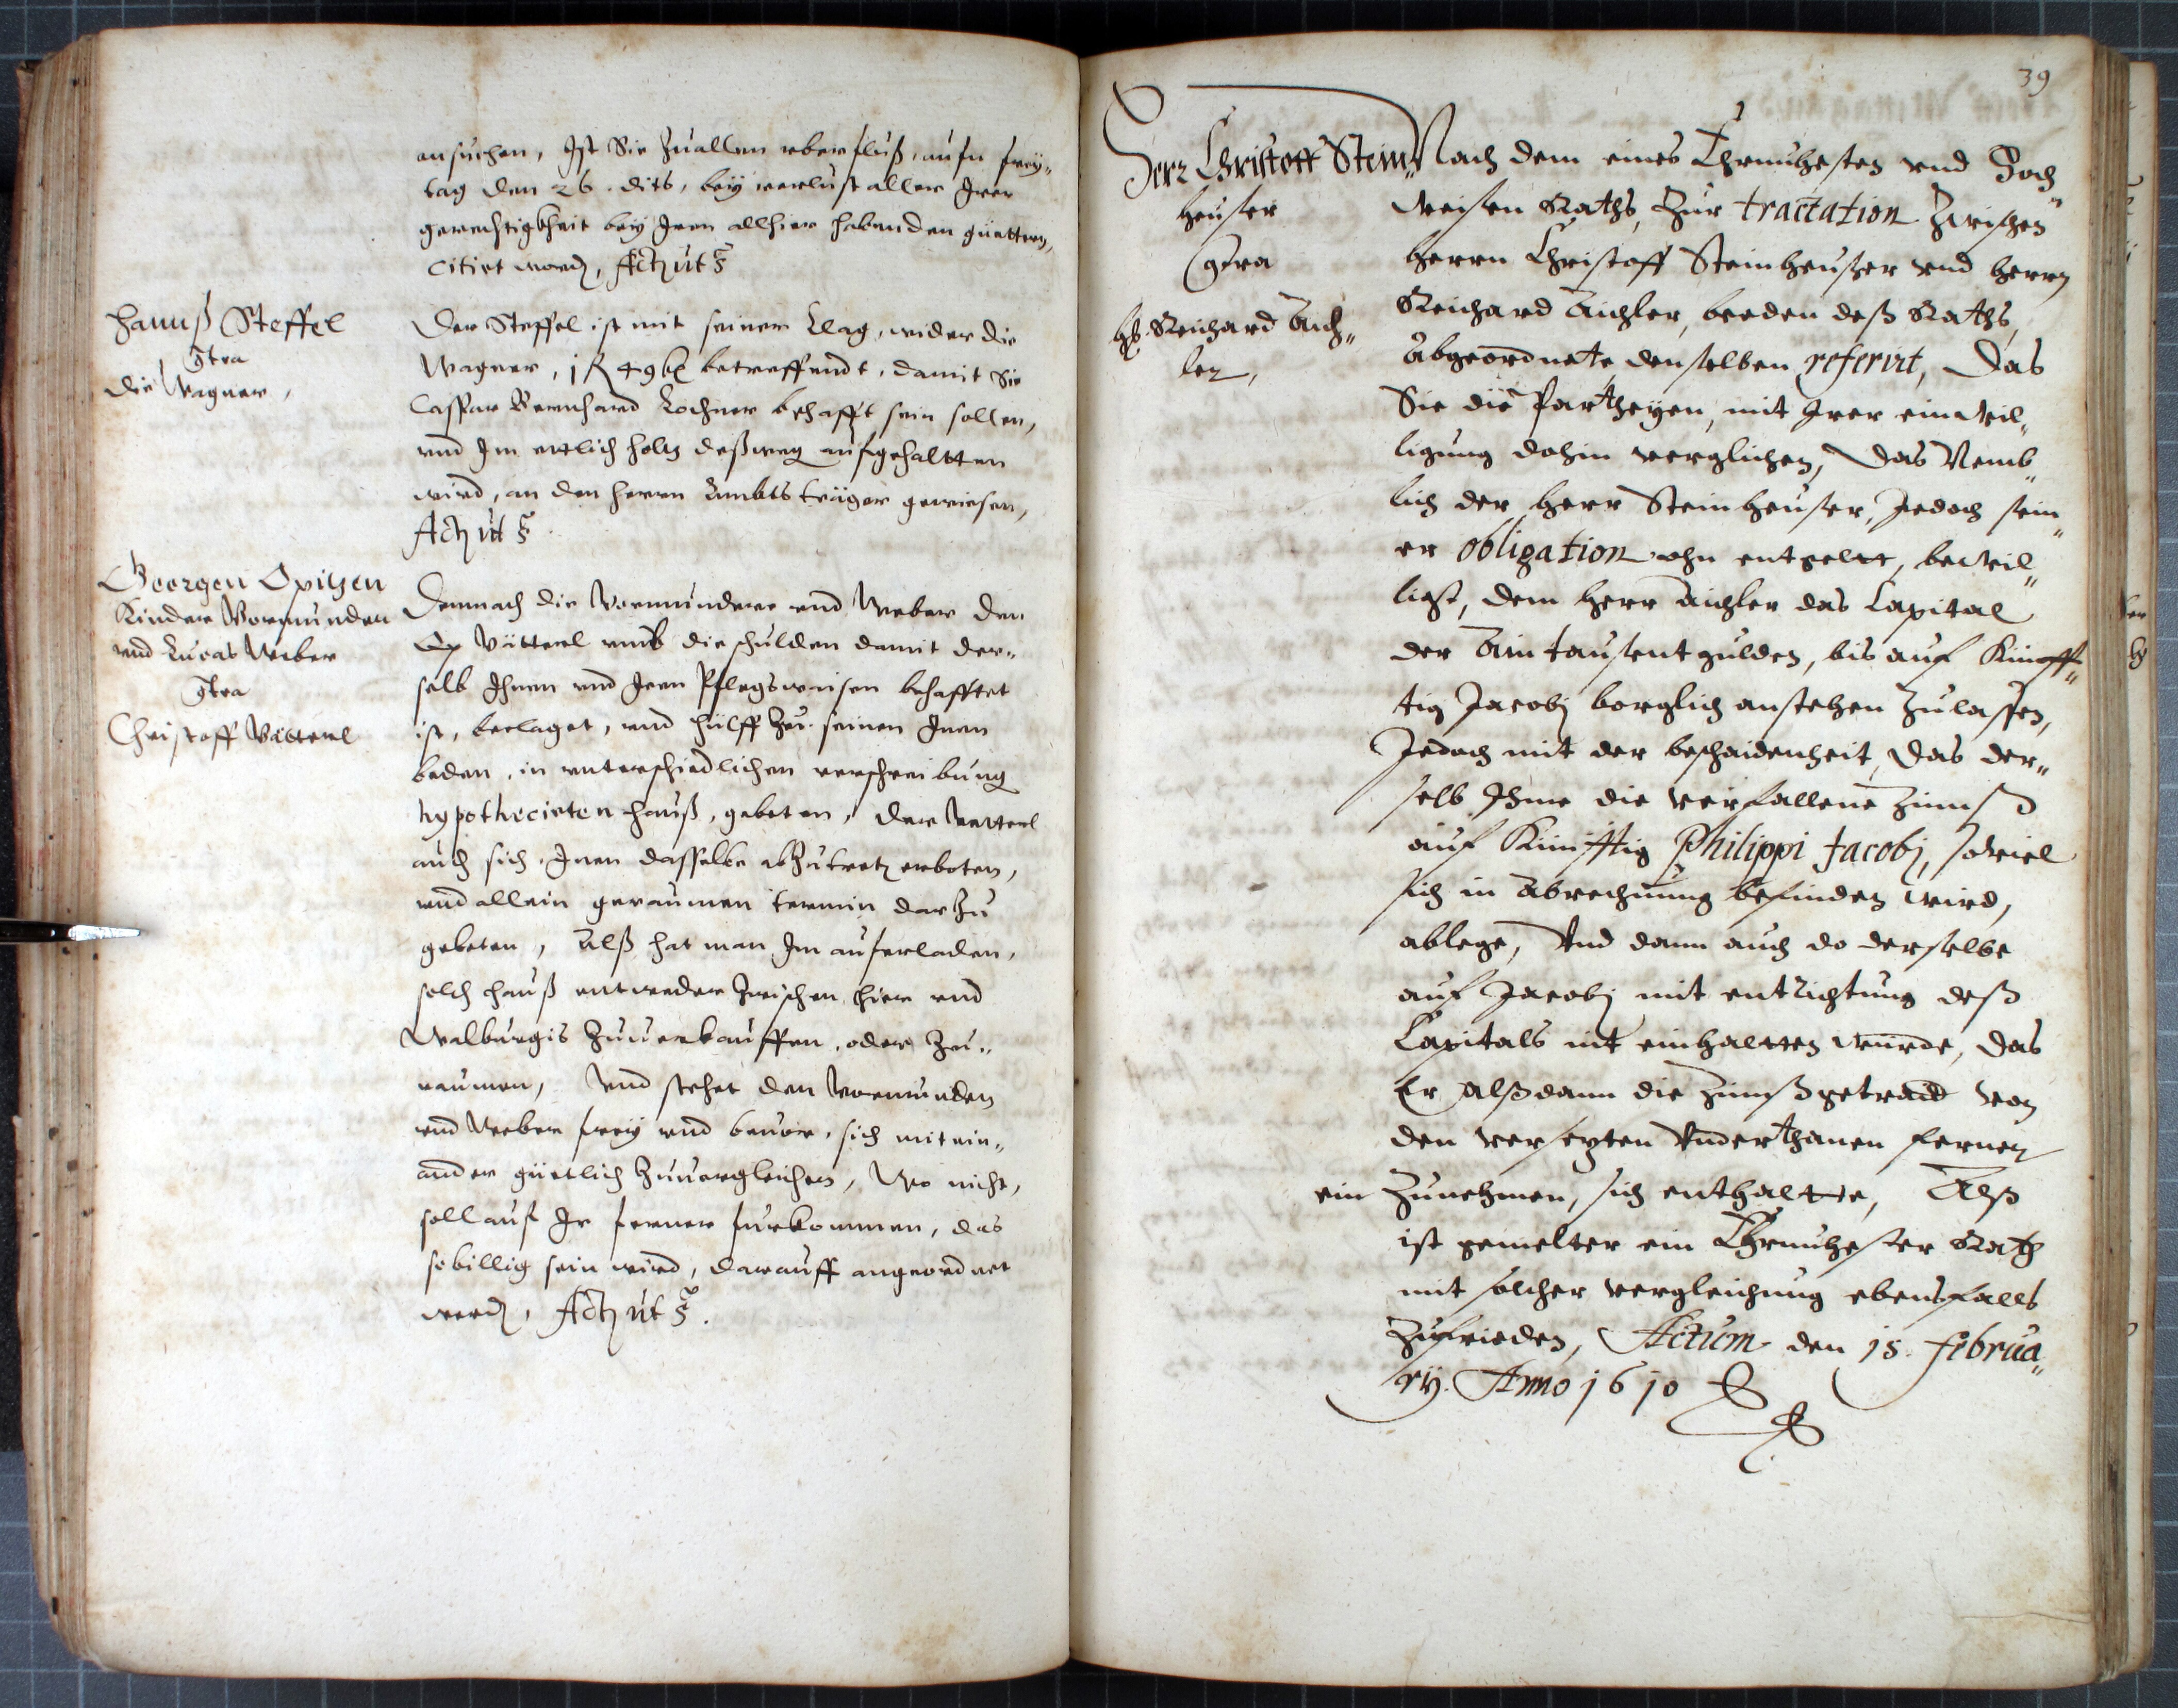 ansuchen, Ist Sie zuallem uberfluß, aufn frey„
tag den 26. dits, bey verlust aller Irer
gerechtigkheit bey Iren allhier habenden güettern,
citirt word, Act ut s
Hannß Steffel
Der Steffel ist mit seiner Klag, wider die
gtra
Wagner, betreffendt, damit Sie
die Wagner,
Caspar Bernhard Lochner behafft sein sollen,
und Im ettlich holtz deßweg aufgehaltten
wird, an den herrn Ambts träger gewiesen,
Act ut s
Georgen Opitzen
Kinder Vormunden
und Lucas Weber
gtra
Christoff Vätterl
Demnach die Vormundere und Weber den
Vätterl umb die schulden damit der„
selb Ihnen und Iren Pflegswaisen behafftet
ist, beclaget, und hülff zu seinen Inen
beden, in unterschiedlichen verschreibung
hypothecirten hauß, gebeten, der Vätterl
auch sich Inen dasselbe abzutretten erboten,
und allein geraumen termin darzu
gebeten, Alß hat man Im auferladen,
solch hauß entweder zwischen hier und
Walburgis zuuerkauffen, oder zu„
raumen, Und stehet den Vormunden
und Weber frey und beuor, sich mit ein„
ander güetlich zuuergleichen, Wo nicht,
soll auf Ir ferner furkommen, das
so billig sein wird, darauff angeordnet
werd, Act ut s.
39
Herr Christoff Stein„
heuser
Cgtra
h. Reichard Aich„
ler,
Nach dem eines Ehrnvhesten und Hoch„
weisen Raths, zur tractation zwischen
herrn Christoff Steinheußer und herrn
Reichard Aichler, beeden deß Raths,
abgeordnete denselben referirt, Das
Sie die Partheyen, mit Irer einwil„
ligung dahin verglichen, Das Nemb„
lich der herr Steinheuser, Jedoch sein„
er obligation ohn entgelt, bewil„
ligt, dem herr Aichler das Capital
der Ain tausent gulden, bis auf Künff„
tig Jacobj borglich anstehen zulassen,
Jedoch mit der beschaidenheit, Das der„
selb Ihme die verfallene Zinnß
auf Künfftig Philippi Jacobj, soviel
sich in Abrechnung befinden wird,
ablege, Und dann auch do derselbe
auf Jacobj mit entrichtung deß
Capitals nit einhaltten wurde, das
Er alßdann die Zinnßgetraid von
den versezten Underthanen ferner
ein zunehmen, sich enthaltte, Alß
ist gemelter ein Ehrnvhester Rath
mit solcher vergleichung ebensfalls
zufrieden, Actum den 15. Februa„
rÿ. Anno 1610